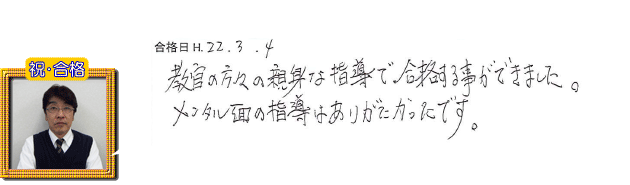 祝・合格
合格日 H.22.3.4
教官の方々の親身な指導で、合格する事ができました。
メンタル面の指導はありがたかったです。